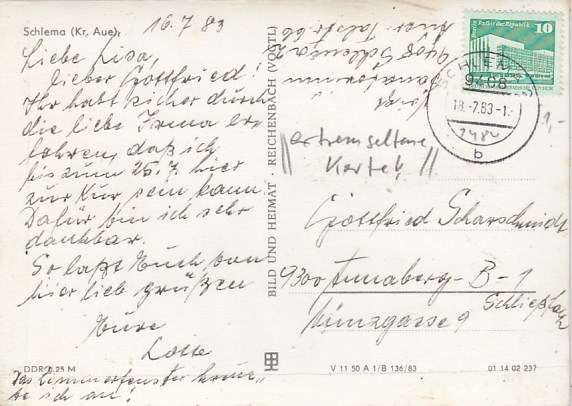 Schlema (Kr. Aue)
16.7.83
Liebe Lisa,
lieber Gottfried!
Ihr habt sicher durch
die liebe Irma er-
fahren, daß ich
bis zum 25.7. hier
zur Kur sein kann.
Dafür bin ich sehr
dankbar.
So laßt Euch von
hier lieb grüßen
Eure
Lotte
DDR 0,25 M
Das Zimmerfenster kreuz-
te ich an!
BILD UND HEIMAT · REICHENBACH (VOGTL)
Sanatorium
9408 Schlema
Talstr. 66
Berlin Palast der Republik
10
DDR
SCHLEMA
9408
18.-7.83-1
b
1,-
"extrem seltene
Karte!"
Gottfried Scharschmidt
9300 Annaberg-B-1
Münzgasse 9
V 11 50 A 1/B 136/83
01 14 02 237